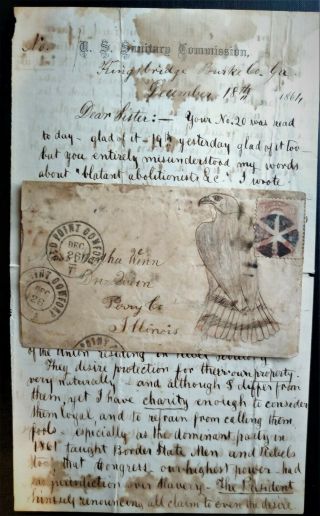 No.
U. S. Sanitary Commission,
Kingsbridge Burke Co. Ga.
December 18th 1864
Dear Sister: — Your No. 20 was read
to day - glad of it - 19th yesterday glad of it too -
but you entirely misunderstood my words
about "blatant abolitionists &c." I wrote
OLD POINT COMFORT
DEC
26
Martha Winn
Du Quoin
Perry Co
Illinois
POINT COMFORT
DEC
26
of the Union residing in
They desire protection for their own property
very naturally - and although I differ from
them, yet I have charity enough to consider
them loyal, and to refrain from calling them
fools - especially as the dominant party in
1861 taught Border State Men and Rebels
too, that Congress - our highest power - had
no jurisdiction over Slavery - The President
himself renouncing all claim to even the desire